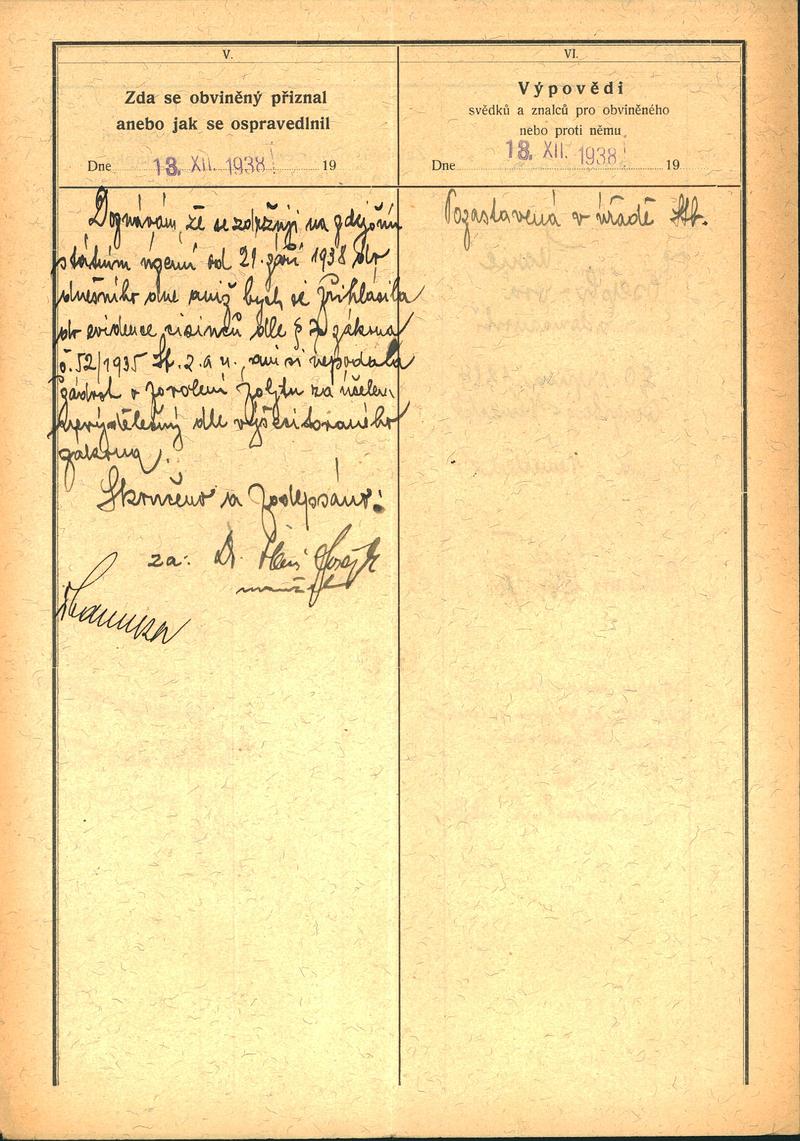 V.
Zda se obviněný přiznal
anebo jak se ospravedlnil
Dne 13. XII. 1938 19
Doznávám, že se zdržuji na zdejším
státním území od 21. září 1938 do
dnešního dne aniž bych se přihlásila
do evidence cizinců dle § 2 zákona
č. 52/1935 Sb. z. a n., ani si nepodala
žádost o povolení pobytu za účelem
dle výšecitovaného
zákona.
Skončeno a podepsáno:
za: Dr.
VI.
Výpovědi
svědků a znalců pro obviněného
nebo proti němu
Dne 13. XII. 1938 19
Pozastavená v úřadě